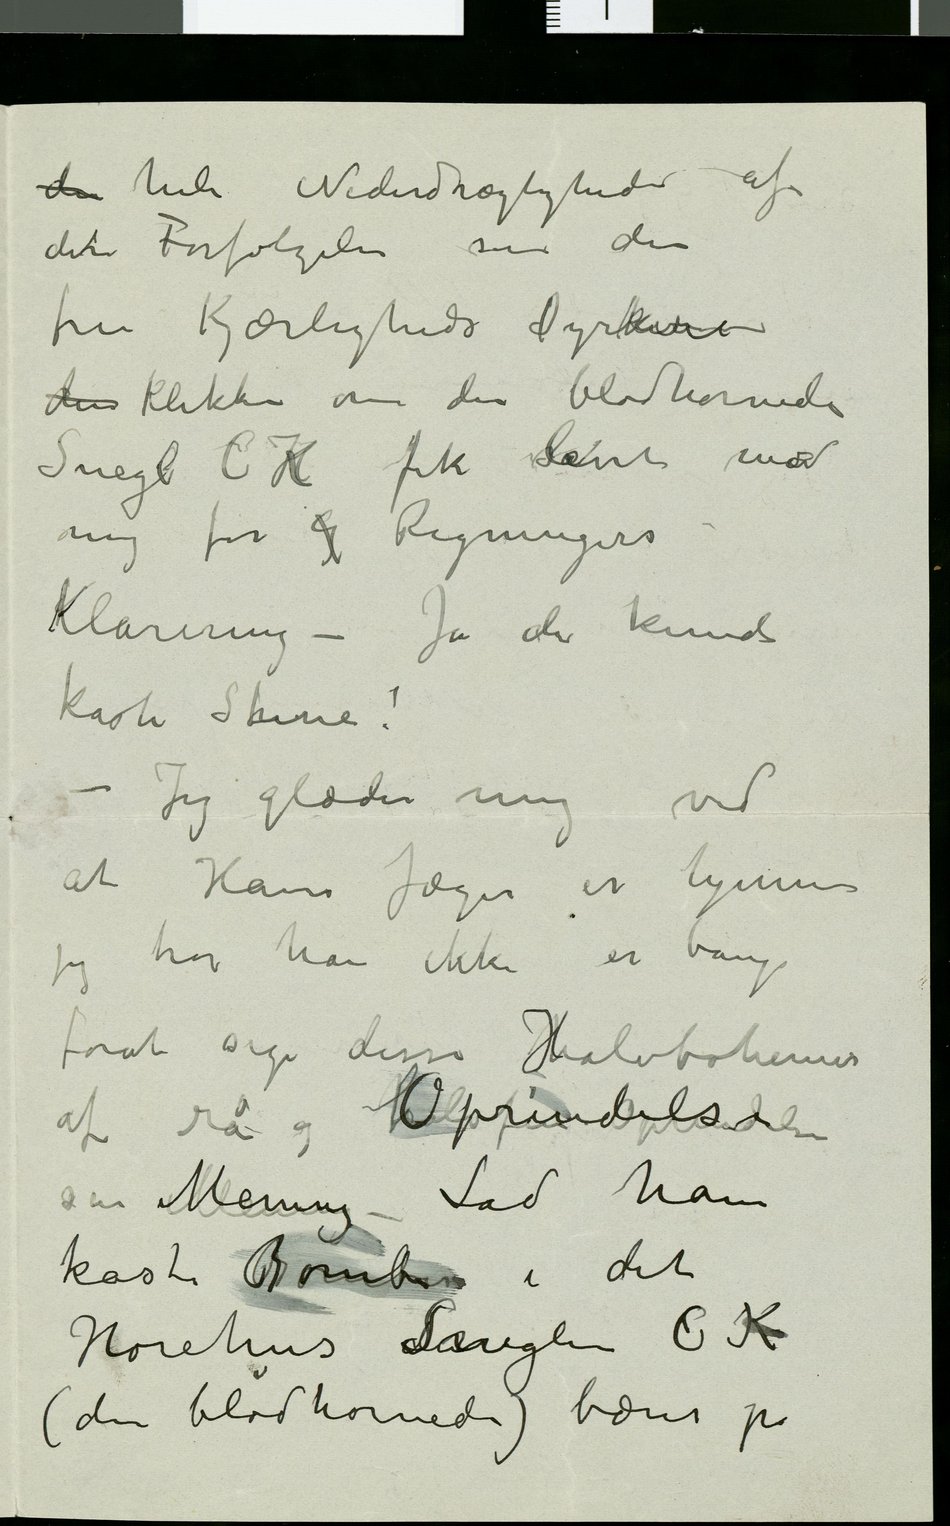 den hele Nederdrægtigheden af
dette Forfølgelse som den
frie Kjærligheds Dyrkere
den Klikken om den blødhornede
Snegl C K fik lavet med
mig for Regningers
Klarering – Ja de kunde
kaste Stene!
– Jeg glæder mig ved
at Hans Jæger er hjemme
jeg tror han ikke er bange
forat sige disse Halvbohemer
af rå og Oprindelse
sin Mening – Lad ham
kaste Bomben i det
Horehus Sneglen C K
(den blødhornede) bærer på